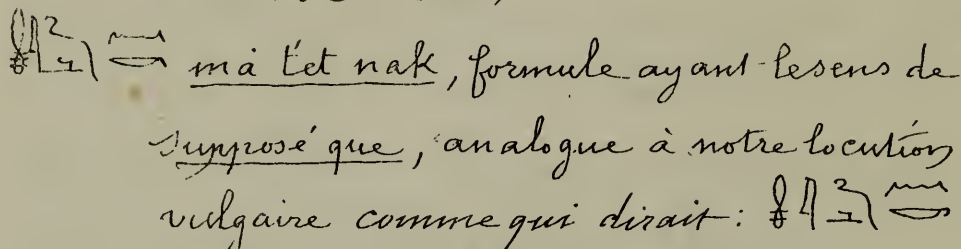 má t'et nak, formule ayant le sens de
supposé que, analogue à notre locution
vulgaire comme qui dirait: